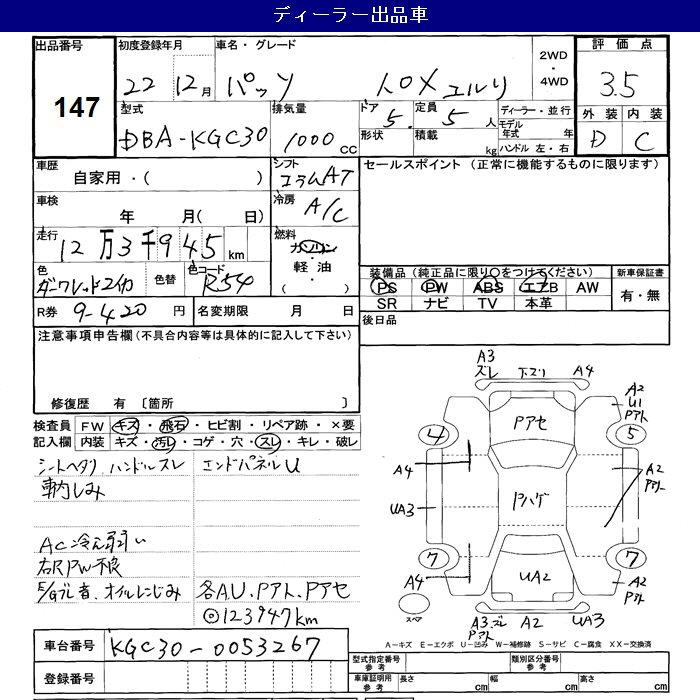 ディーラー出品車
出品番号 初度登録年月 車名・グレード 2WD・4WD 評価点
147 22年12月 パッソ 1.0X エルリ 3.5
型式 排気量 ドア 定員 ディーラー・並行 外装 内装
DBA-KGC30 1000cc 5 5人 モデル年式 年 D C
形状 積載 kg ハンドル 左・右
車歴 シフト セールスポイント (正常に機能するものに限ります)
自家用・( ) コラムAT
車検 冷房
年 月( 日) A/C
走行 燃料
12万3千945km ガソリン・軽油・
色 色替 色コード 装備品 (純正品に限り○をつけてください) 新車保証書
ダークレッドマイカ R54 PS PW ABS エアB AW 有・無
SR ナビ TV 本革
R券 9-420円 名変期限 月 日 後日品
注意事項申告欄 (不具合内容等は具体的に記入して下さい)
修復歴 有 〔箇所 〕
検査員記入欄 FW キズ・飛石・ヒビ割・リペア跡・×要
内装 キズ・汚レ・コゲ・穴・スレ・キレ・破レ
シートヘタリ ハンドルスレ エンドパネルU
車内しみ
AC冷え弱い
右RPW不良
E/Gブレ音、オイルにじみ 各AU、Pアト、Pアセ
◎123947km
A3 ズレ 下ズリ A4
A2 U1 Pアト
Pアセ
4 5
A4 A2
UA3 Pハゲ
7 7
A4 UA2 A2 Pアト
スペア
A3 ズレ Pアト A2 UA3
A-キズ E-エクボ U-凹み W-補修跡 S-サビ C-腐食 XX-交換済
車台番号 KGC30-0053267
登録番号
型式指定番号 参考 類別区分番号 参考
車庫証明用 参考 長さ cm 幅 cm 高さ cm